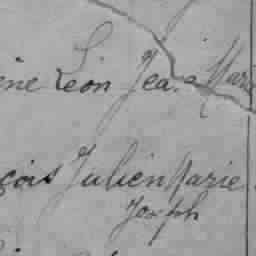 ène Léon Jean Mari
çois Julien Marie
Joseph